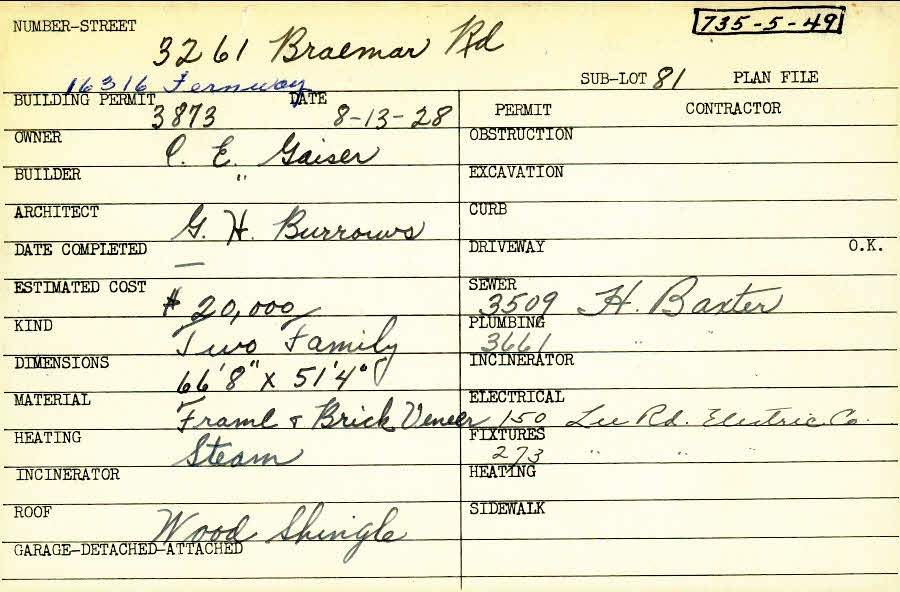 NUMBER-STREET 3261 Braemar Rd 735-5-49
16316 Fernway SUB-LOT 81 PLAN FILE
BUILDING PERMIT 3873 DATE 8-13-28
OWNER C. E. Gaiser
BUILDER "
ARCHITECT G. H. Burrows
DATE COMPLETED —
ESTIMATED COST $20,000
KIND Two Family
DIMENSIONS 66'8" x 51'4"
MATERIAL Frame & Brick Veneer
HEATING Steam
INCINERATOR
ROOF Wood Shingle
GARAGE-DETACHED-ATTACHED
PERMIT CONTRACTOR
OBSTRUCTION
EXCAVATION
CURB
DRIVEWAY O.K.
SEWER 3509 H. Baxter
PLUMBING 3661 "
INCINERATOR
ELECTRICAL 150 Lee Rd. Electric Co.
FIXTURES 273 " " "
HEATING
SIDEWALK